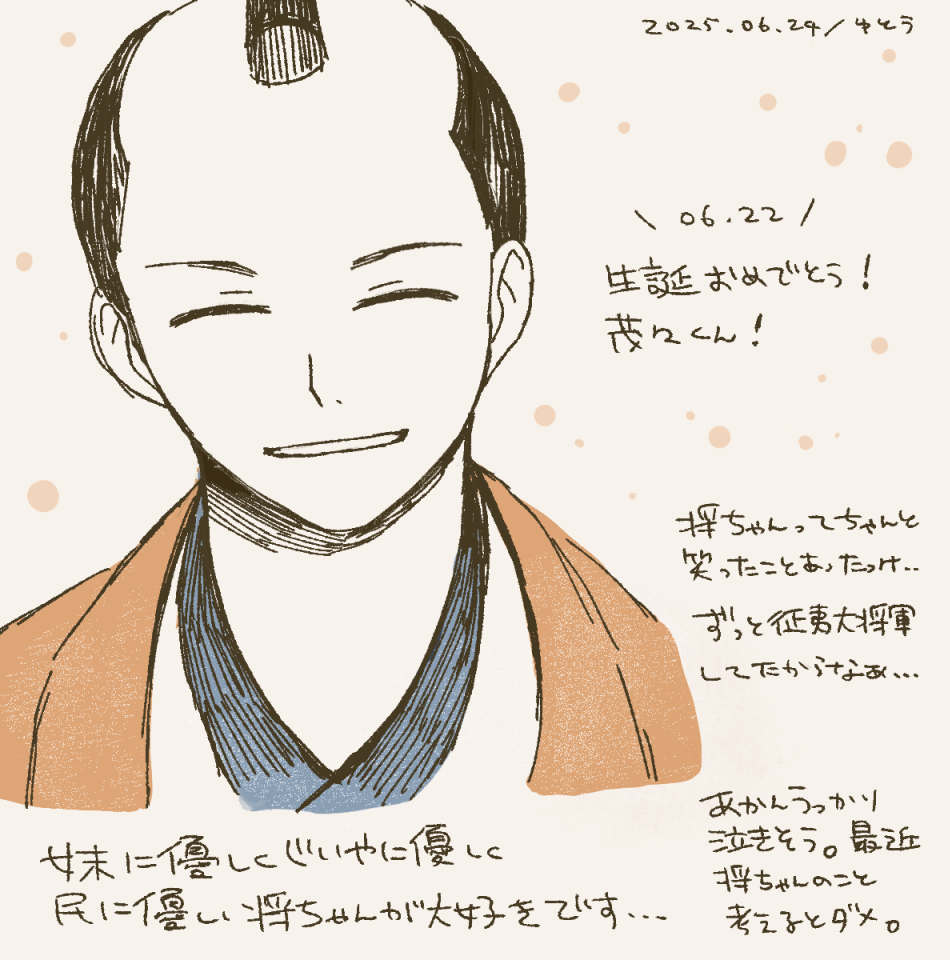 2025.06.24/ゆとう
\ 06.22 /
生誕おめでとう!
茂々くん!
将ちゃんってちゃんと
笑ったことあったっけ..
ずっと征夷大将軍
してたからなぁ...
あかんうっかり
泣きそう。最近
将ちゃんのこと
考えるとダメ。
妹に優しくじいやに優しく
民に優しい将ちゃんが大好きです...